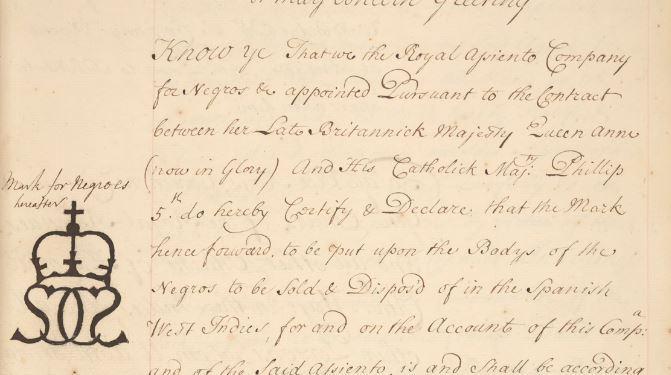 or may Concern Greeting
Know ye That we the Royal Asiento Company
for Negros &c appointed Pursuant to the Contract
between her Late Britannick Majesty Queen Anne
(now in Glory) And His Catholick Maj:ty Phillip
5.th do hereby Certify & Declare that the Mark
hence forward, to be put upon the Bodys of the
Negros to be Sold & Dispos'd of in the Spanish
West Indies, for and on the Accounts of this Comp:a
and of the Said Asiento, is and Shall be according
Mark for Negroes
hereafter